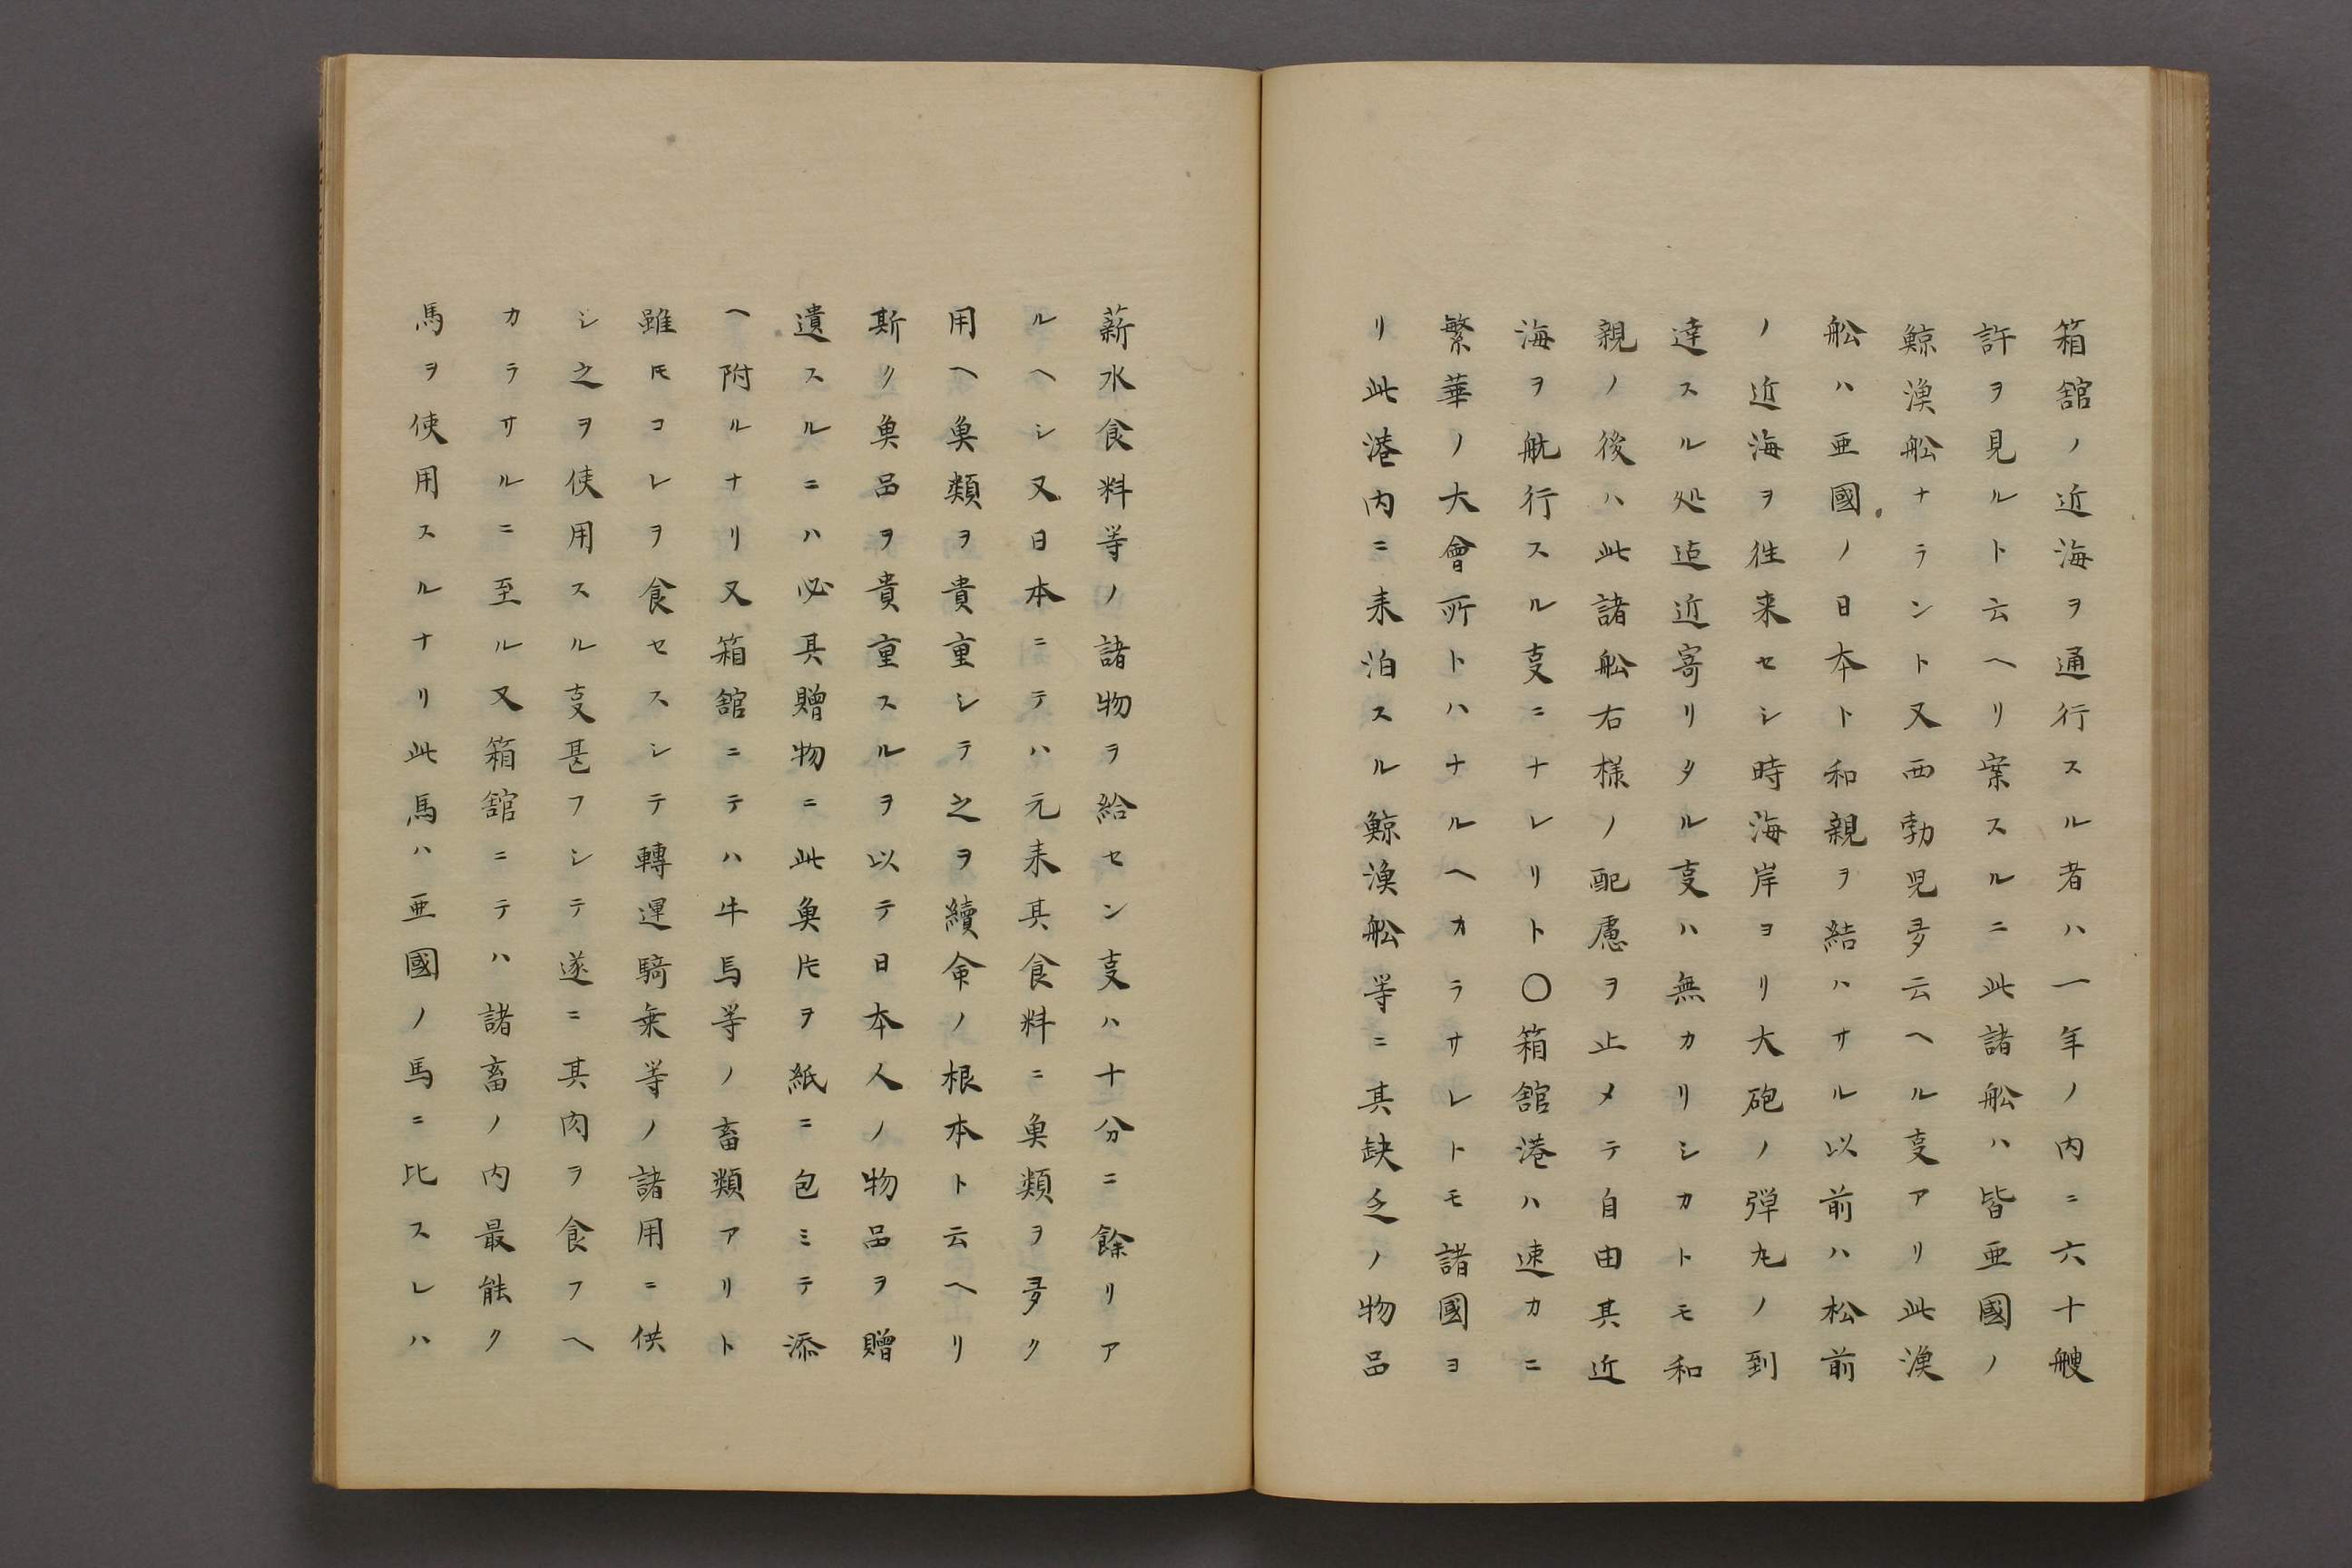 箱舘ノ近海ヲ通行スル者ハ一年ノ内ニ六十艘
許ヲ見ルト云ヘリ案スルニ此諸舩ハ皆亜國ノ
鯨漁舩ナラント又西勃児多云ヘル㕝アリ此漁
舩ハ亜國ノ日本ト和親ヲ結ハサル以前ハ松前
ノ近海ヲ徃来セシ時海岸ヨリ大砲ノ弾丸ノ到
達スル処迠近寄リタル㕝ハ無カリシカトモ和
親ノ後ハ此諸舩右様ノ配慮ヲ止メテ自由其近
海ヲ航行スル㕝ニナレリト〇箱舘港ハ速カニ
繁華ノ大會所トハナルヘカラサレトモ諸國ヨ
リ此港内ニ来泊スル鯨漁舩等ニ其缺乏ノ物品
薪水食料等ノ諸物ヲ給セン㕝ハ十分ニ餘リア
ルヘシ又日本ニテハ元来其食料ニ魚類ヲ多ク
用ヘ魚類ヲ貴重シテ之ヲ續命ノ根本ト云ヘリ
斯ク魚品ヲ貴重スルヲ以テ日本人ノ物品ヲ贈
遺スルニハ必其贈物ニ此魚片ヲ紙ニ包ミテ添
ヘ附ルナリ又箱舘ニテハ牛馬等ノ畜類アリト
雖𪜈コレヲ食セスシテ轉運騎乗等ノ諸用ニ供
シ之ヲ使用スル㕝甚フシテ遂ニ其肉ヲ食フヘ
カラサルニ至ル又箱舘ニテハ諸畜ノ内最能ク
馬ヲ使用スルナリ此馬ハ亜國ノ馬ニ比スレハ